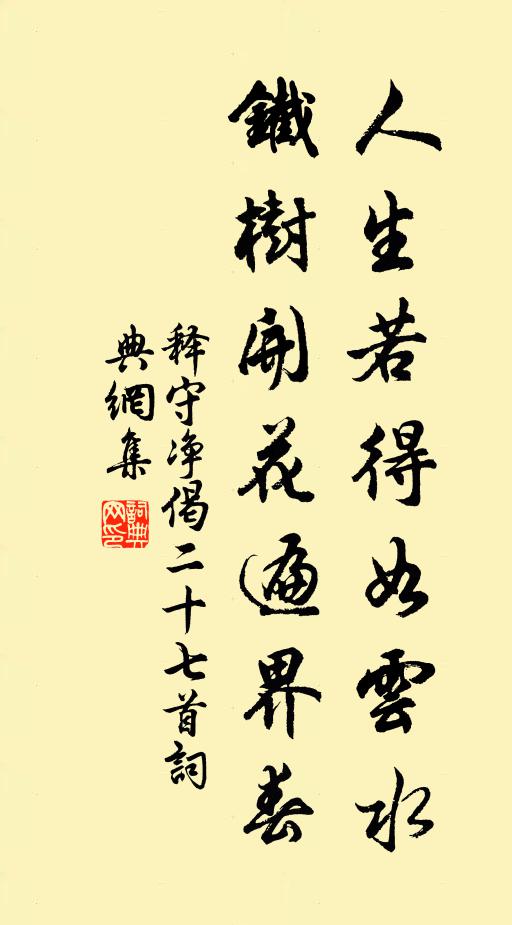 人生若得如雲水
鐵樹開花遍界春
释守净偈二十七首詞
典網集
詞典
网印